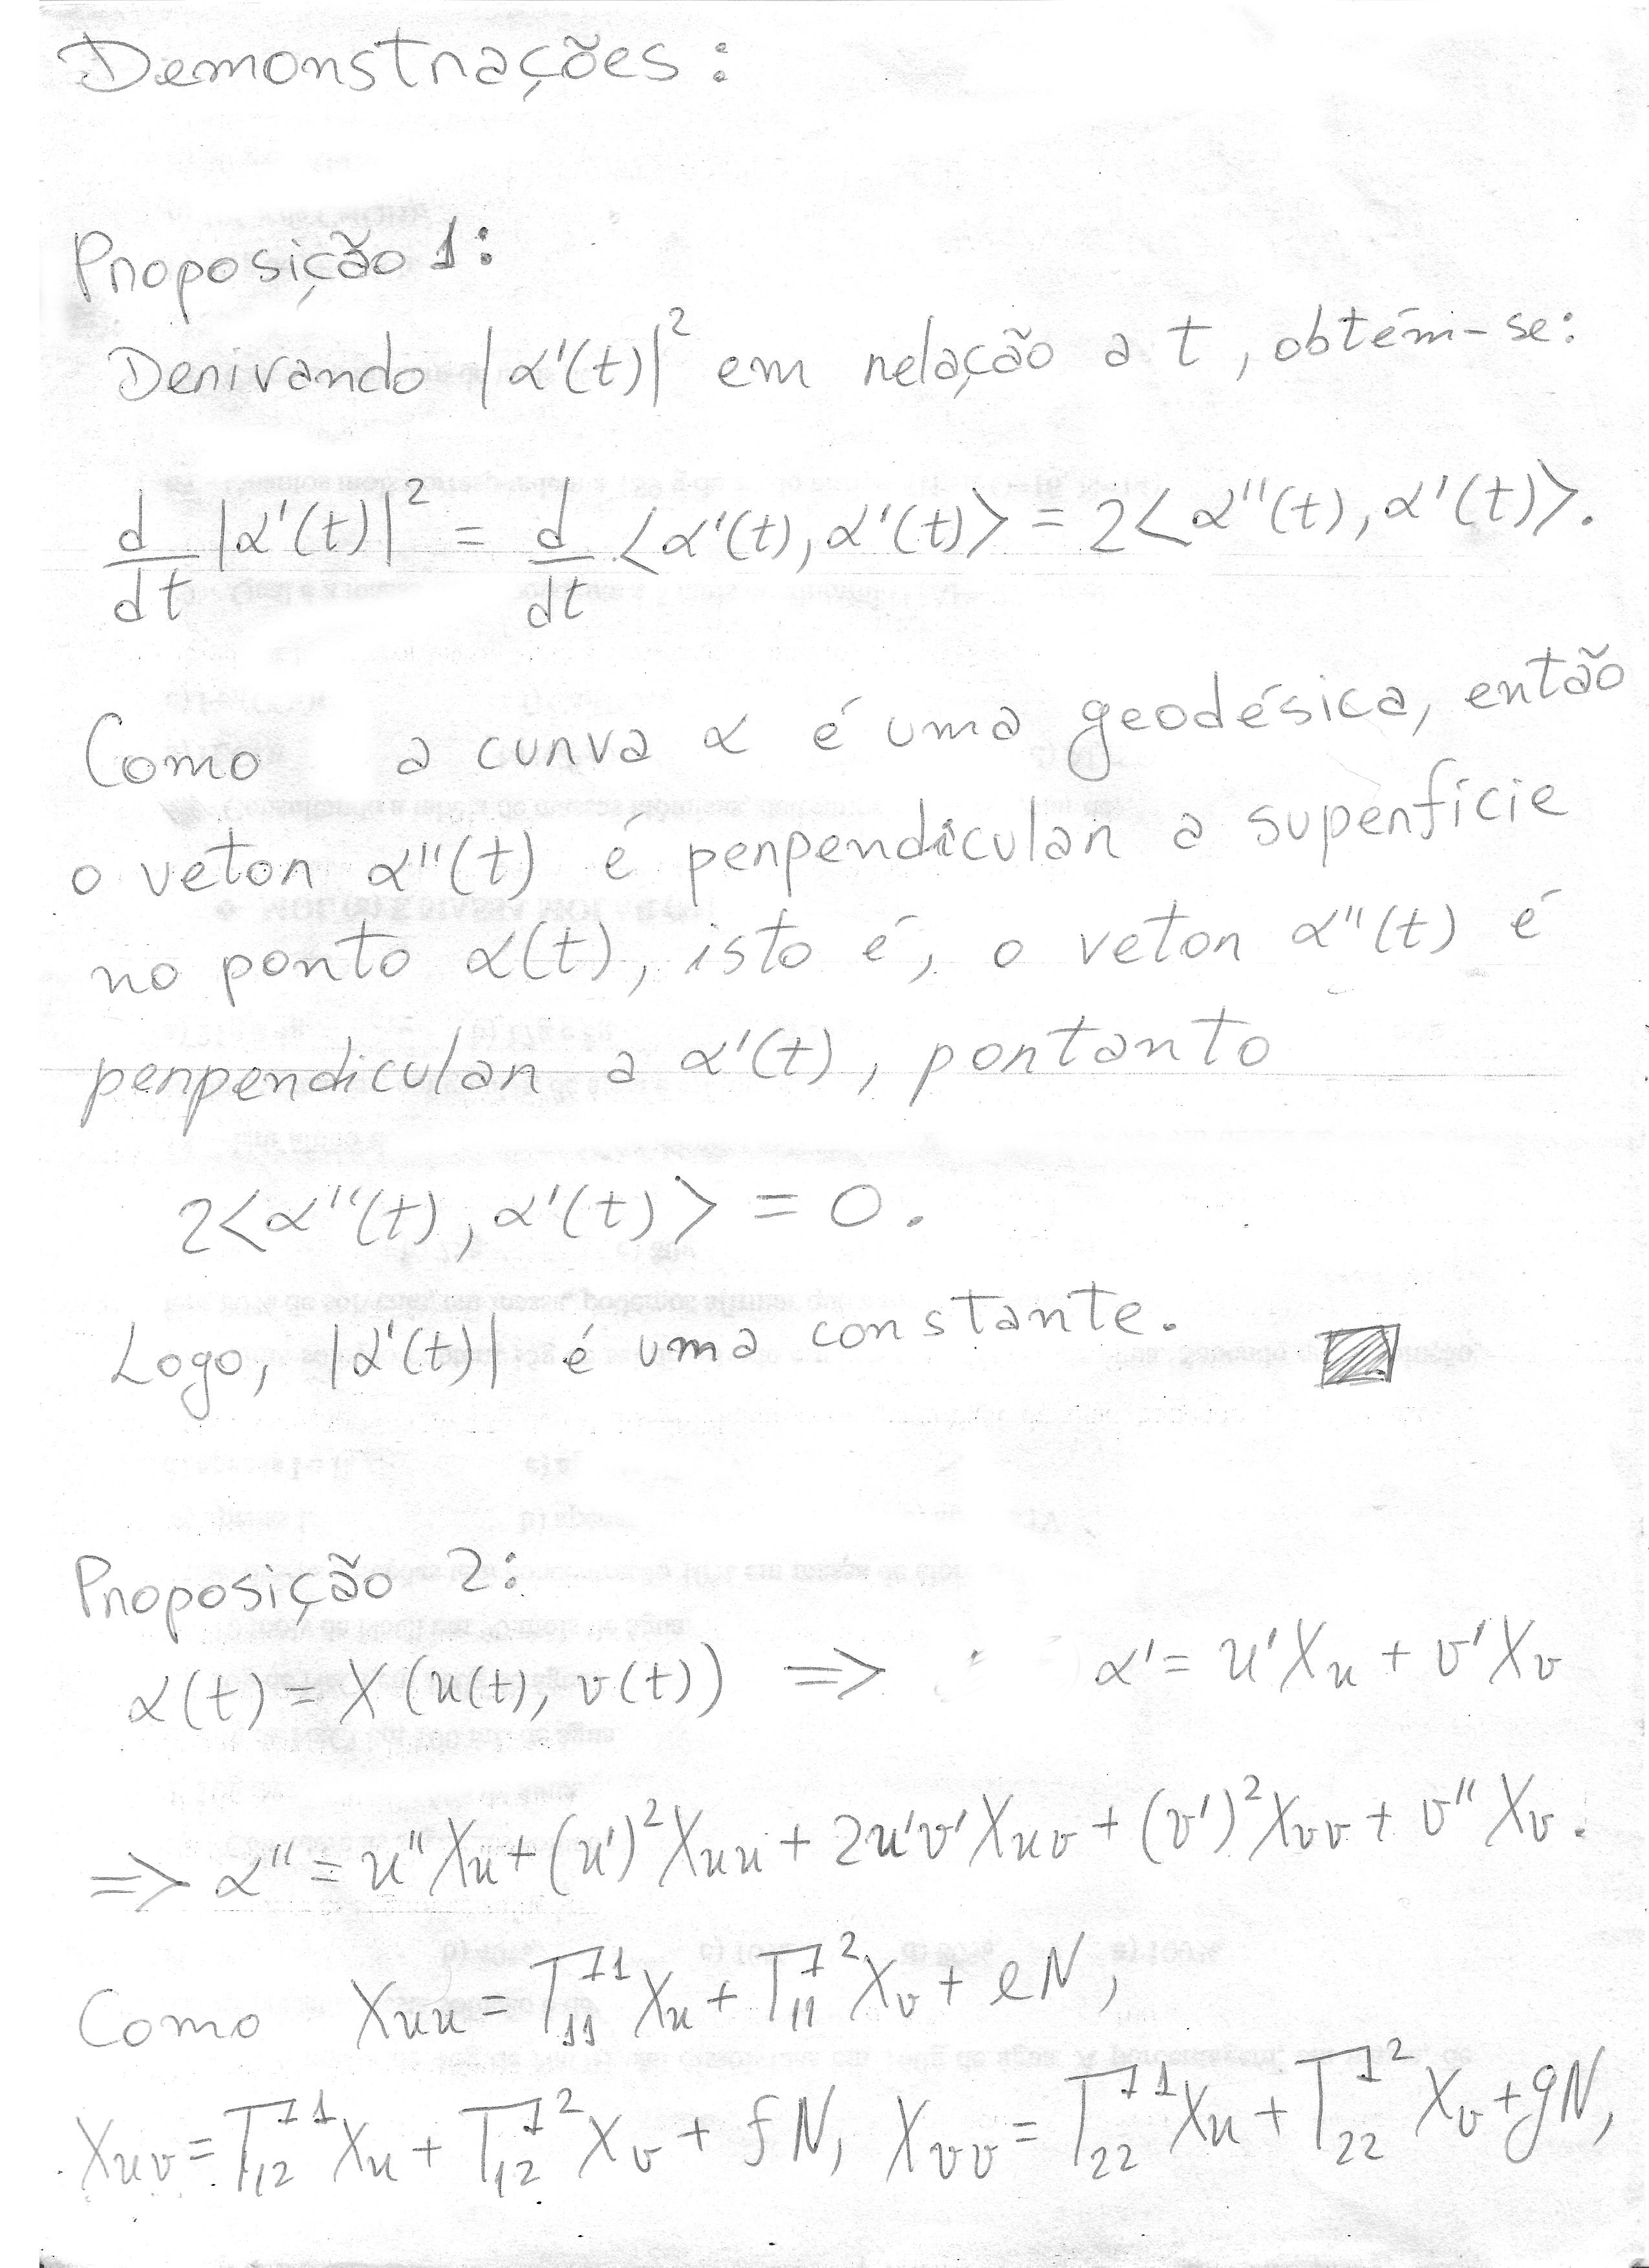 Demonstrações:
Proposição 1:
Derivando |α'(t)|² em relação a t, obtém-se:
d/dt |α'(t)|² = d/dt <α'(t), α'(t)> = 2<α''(t), α'(t)>.
Como a curva α é uma geodésica, então
o vetor α''(t) é perpendicular a superfície
no ponto α(t), isto é, o vetor α''(t) é
perpendicular a α'(t), portanto
2<α''(t), α'(t)> = 0.
Logo, |α'(t)| é uma constante.
Proposição 2:
α(t) = X(u(t), v(t)) => α' = u'Xu + v'Xv
=> α'' = u''Xu + (u')²Xuu + 2u'v'Xuv + (v')²Xvv + v''Xv.
Como Xuu = Γ₁₁¹Xu + Γ₁₁²Xv + eN,
Xuv = Γ₁₂¹Xu + Γ₁₂²Xv + fN, Xvv = Γ₂₂¹Xu + Γ₂₂²Xv + gN,